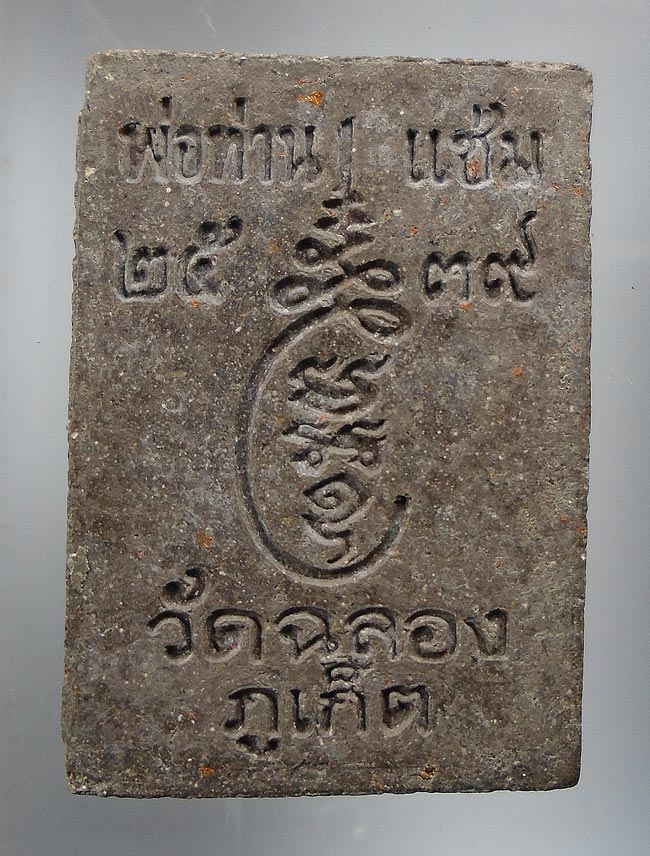 พ่อท่าน แช้ม
๒๕ ๓๙
วัดฉลอง
ภูเก็ต